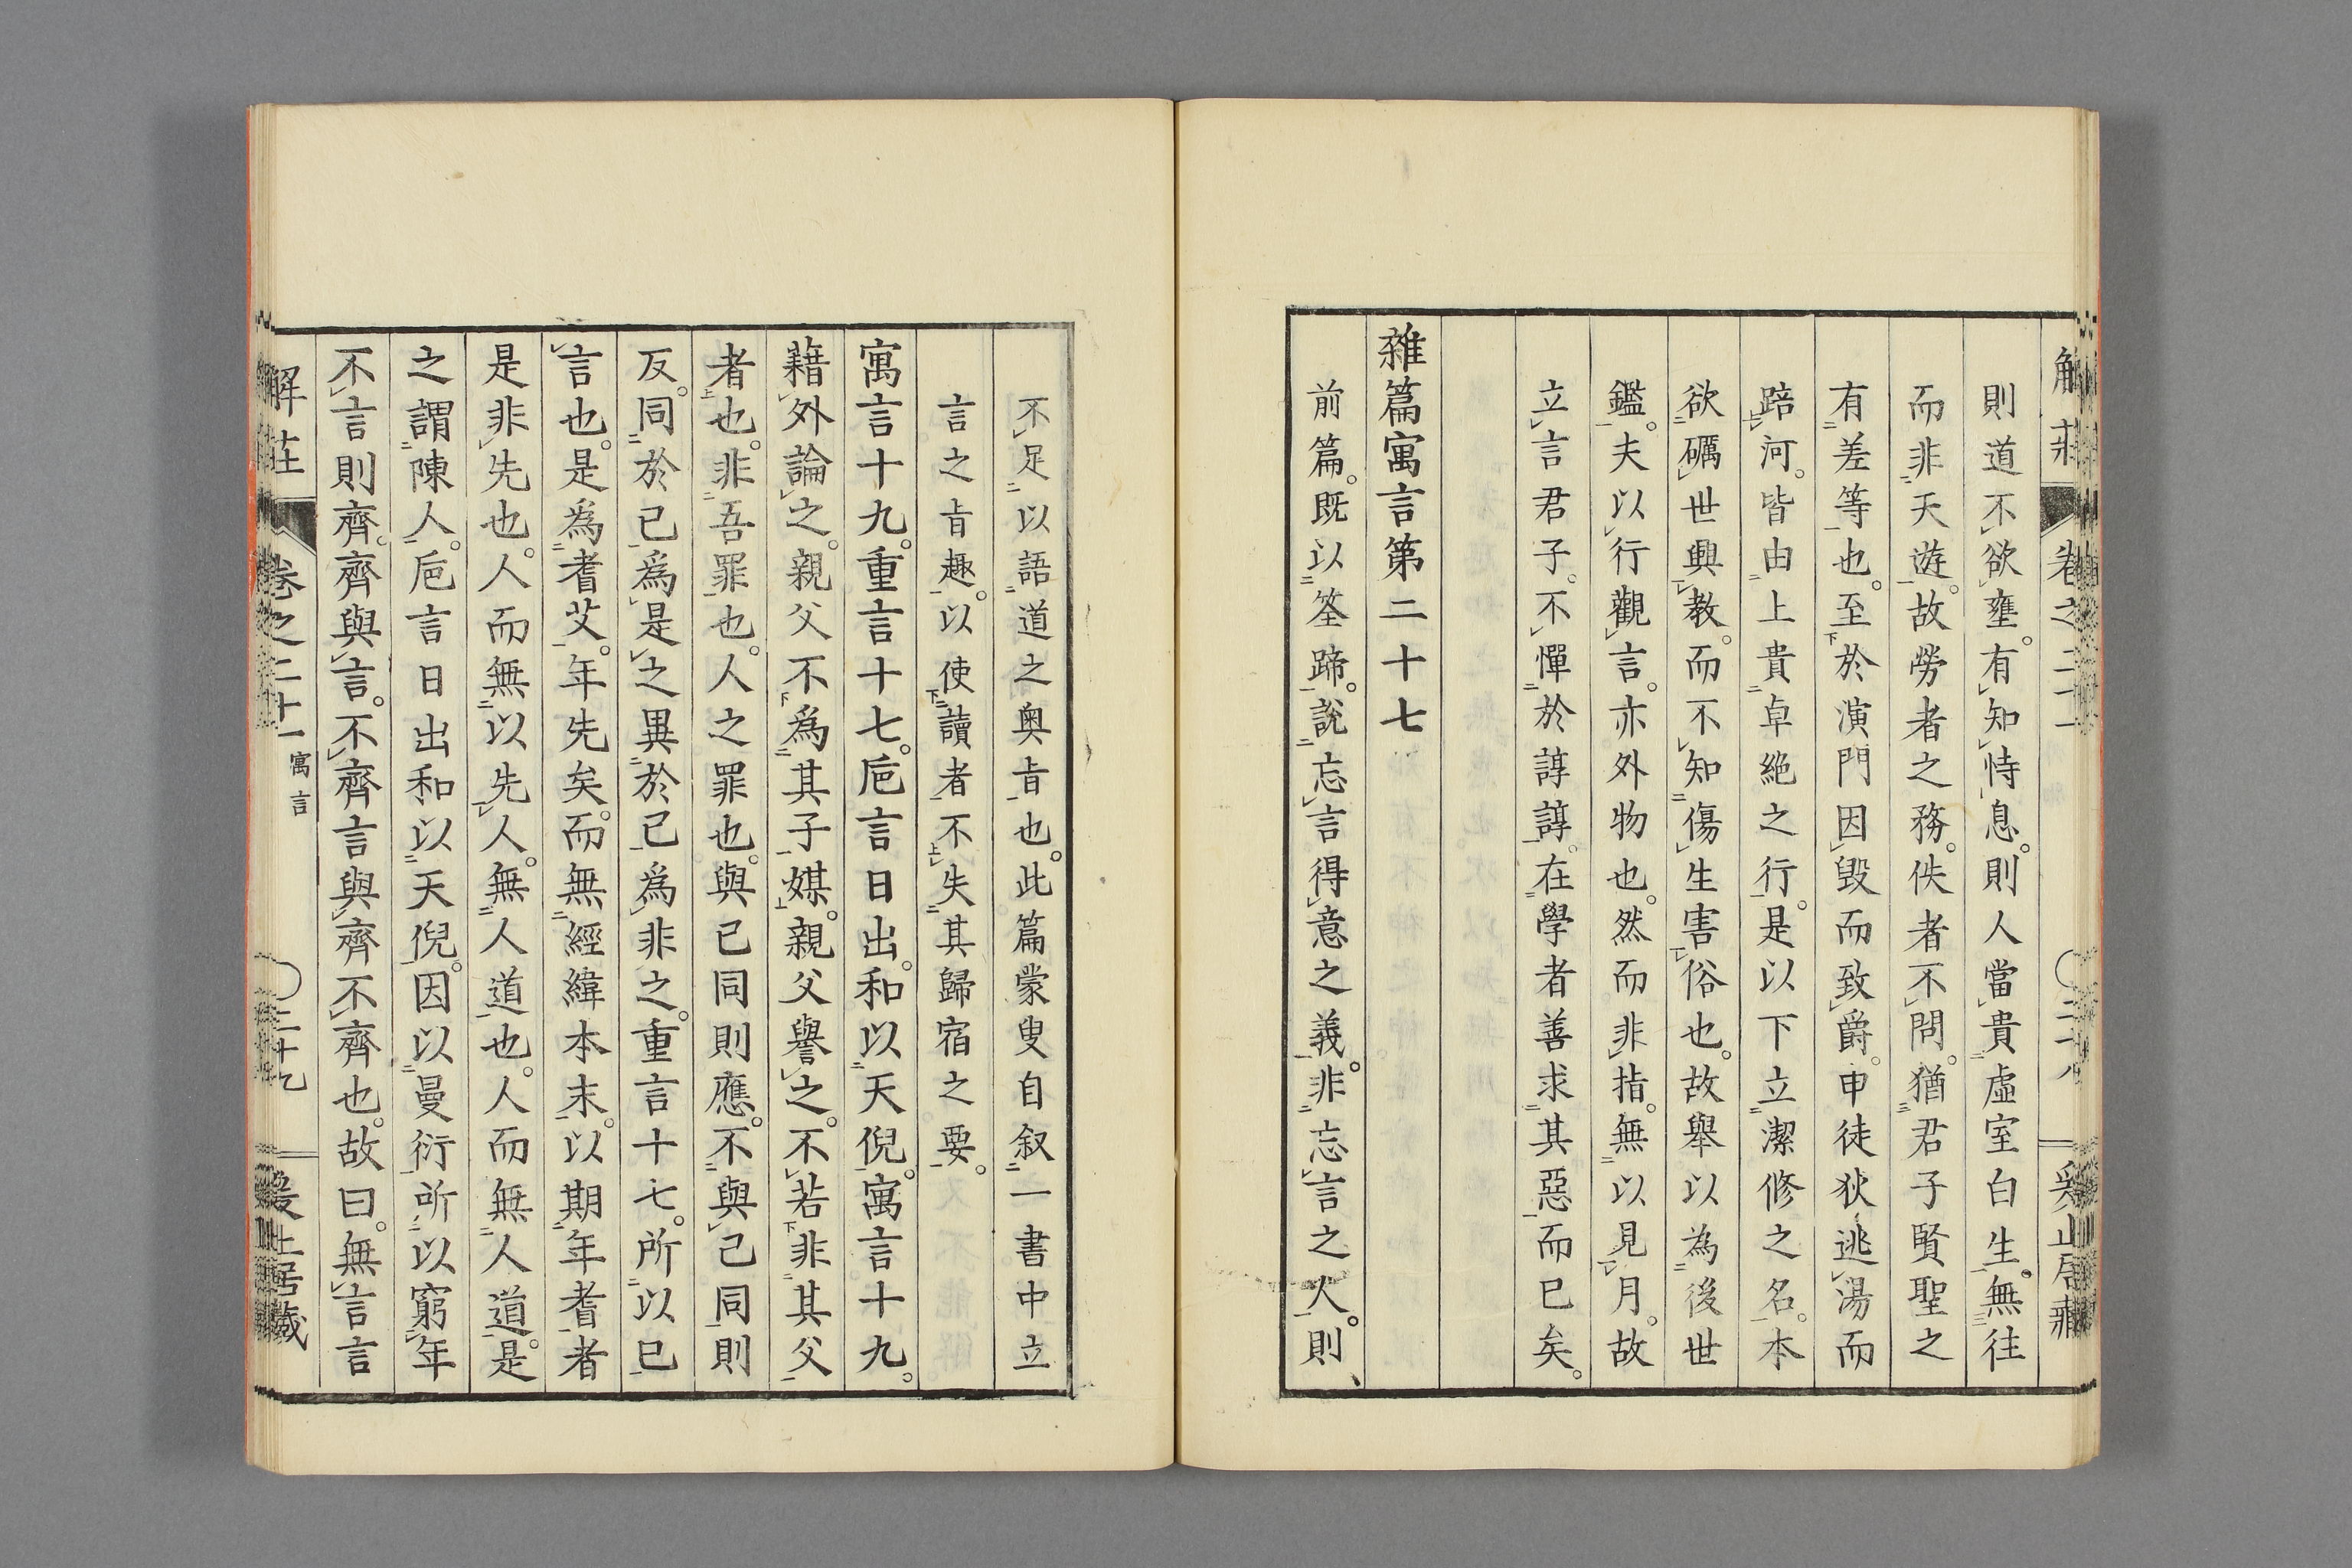 則道不欲壅。有知恃息。則人當貴虛室白生。無往
而非天遊。故勞者之務。佚者不問。猶君子賢聖之
有差等也。至於演門因毀而致爵。申徒狄逃湯而
踣河。皆由上貴卓絶之行。是以下立潔修之名。本
欲礪世興教。而不知傷生害俗也。故舉以為後世
鑑。夫以行觀言。亦外物也。然而非指。無以見月。故
立言君子。不憚於諄諄。在學者善求其惡而已矣。
雜篇寓言第二十七
前篇。既以筌蹄。說忘言得意之義。非忘言之人。則、
不足以語道之奥㫖也。此篇蒙叟自叙一書中立
言之㫖趣。以使讀者不失其歸宿之要。
寓言十九。重言十七。巵言日出。和以天倪。寓言十九。
藉外論之。親父不為其子媒。親父譽之。不若非其父
者也。非吾罪也。人之罪也。與已同則應。不與己同則
反。同於已爲是之異於已爲非之。重言十七。所以已
言也。是爲耆艾。年先矣。而無經緯本末。以期年耆者
是非先也。人而無以先人。無人道也。人而無人道。是
之謂陳人。巵言日出和以天倪。因以曼衍所以窮年
不言則齊。齊與言。不齊言與齊不齊也。故曰。無言言
解莊
卷之二十一 寓言
二十九